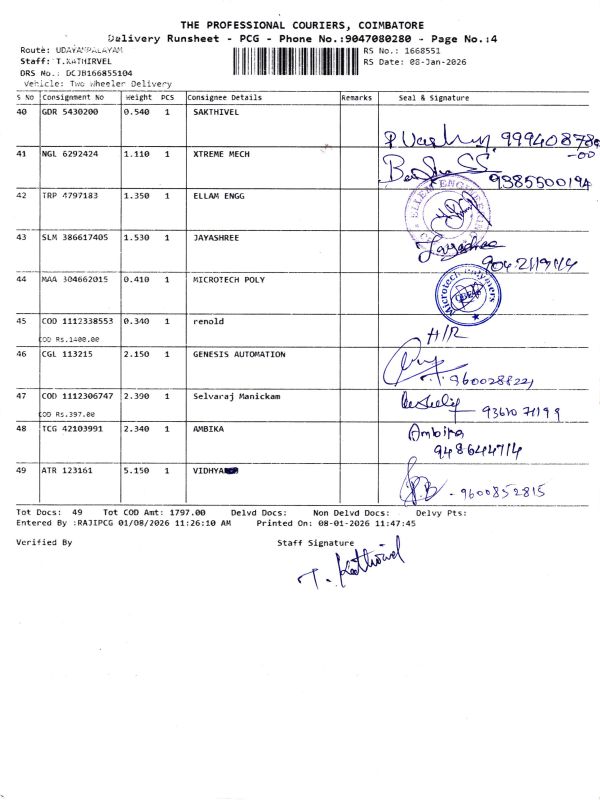 THE PROFESSIONAL COURIERS, COIMBATORE
Delivery Runsheet - PCG - Phone No.:9047080280 - Page No.:4
Route: UDAYAMPALAYAM
RS No.: 1668551
Staff: T.KATHIRVEL
RS Date: 08-Jan-2026
DRS No.: DCJB166855104
Vehicle: Two Wheeler Delivery
S No Consignment No Weight PCS Consignee Details Remarks Seal & Signature
40 GDR 5430200 0.540 1 SAKTHIVEL
41 NGL 6292424 1.110 1 XTREME MECH
9385500194
42 TRP 4797183 1.350 1 ELLAM ENGG
43 SLM 386617405 1.530 1 JAYASHREE
Jayashree
44 MAA 304662015 0.410 1 MICROTECH POLY
Microtech Polymers
45 COD 1112338553 0.340 1 renold
COD Rs.1400.00
H/R
46 CGL 113215 2.150 1 GENESIS AUTOMATION
47 COD 1112306747 2.390 1 Selvaraj Manickam
COD Rs.397.00
48 TCG 42103991 2.340 1 AMBIKA
Ambika
49 ATR 123161 5.150 1 VIDHYA
9600852815
Tot Docs: 49 Tot COD Amt: 1797.00 Delvd Docs: Non Delvd Docs: Delvy Pts:
Entered By :RAJIPCG 01/08/2026 11:26:10 AM Printed On: 08-01-2026 11:47:45
Verified By Staff Signature
T. Kathirvel